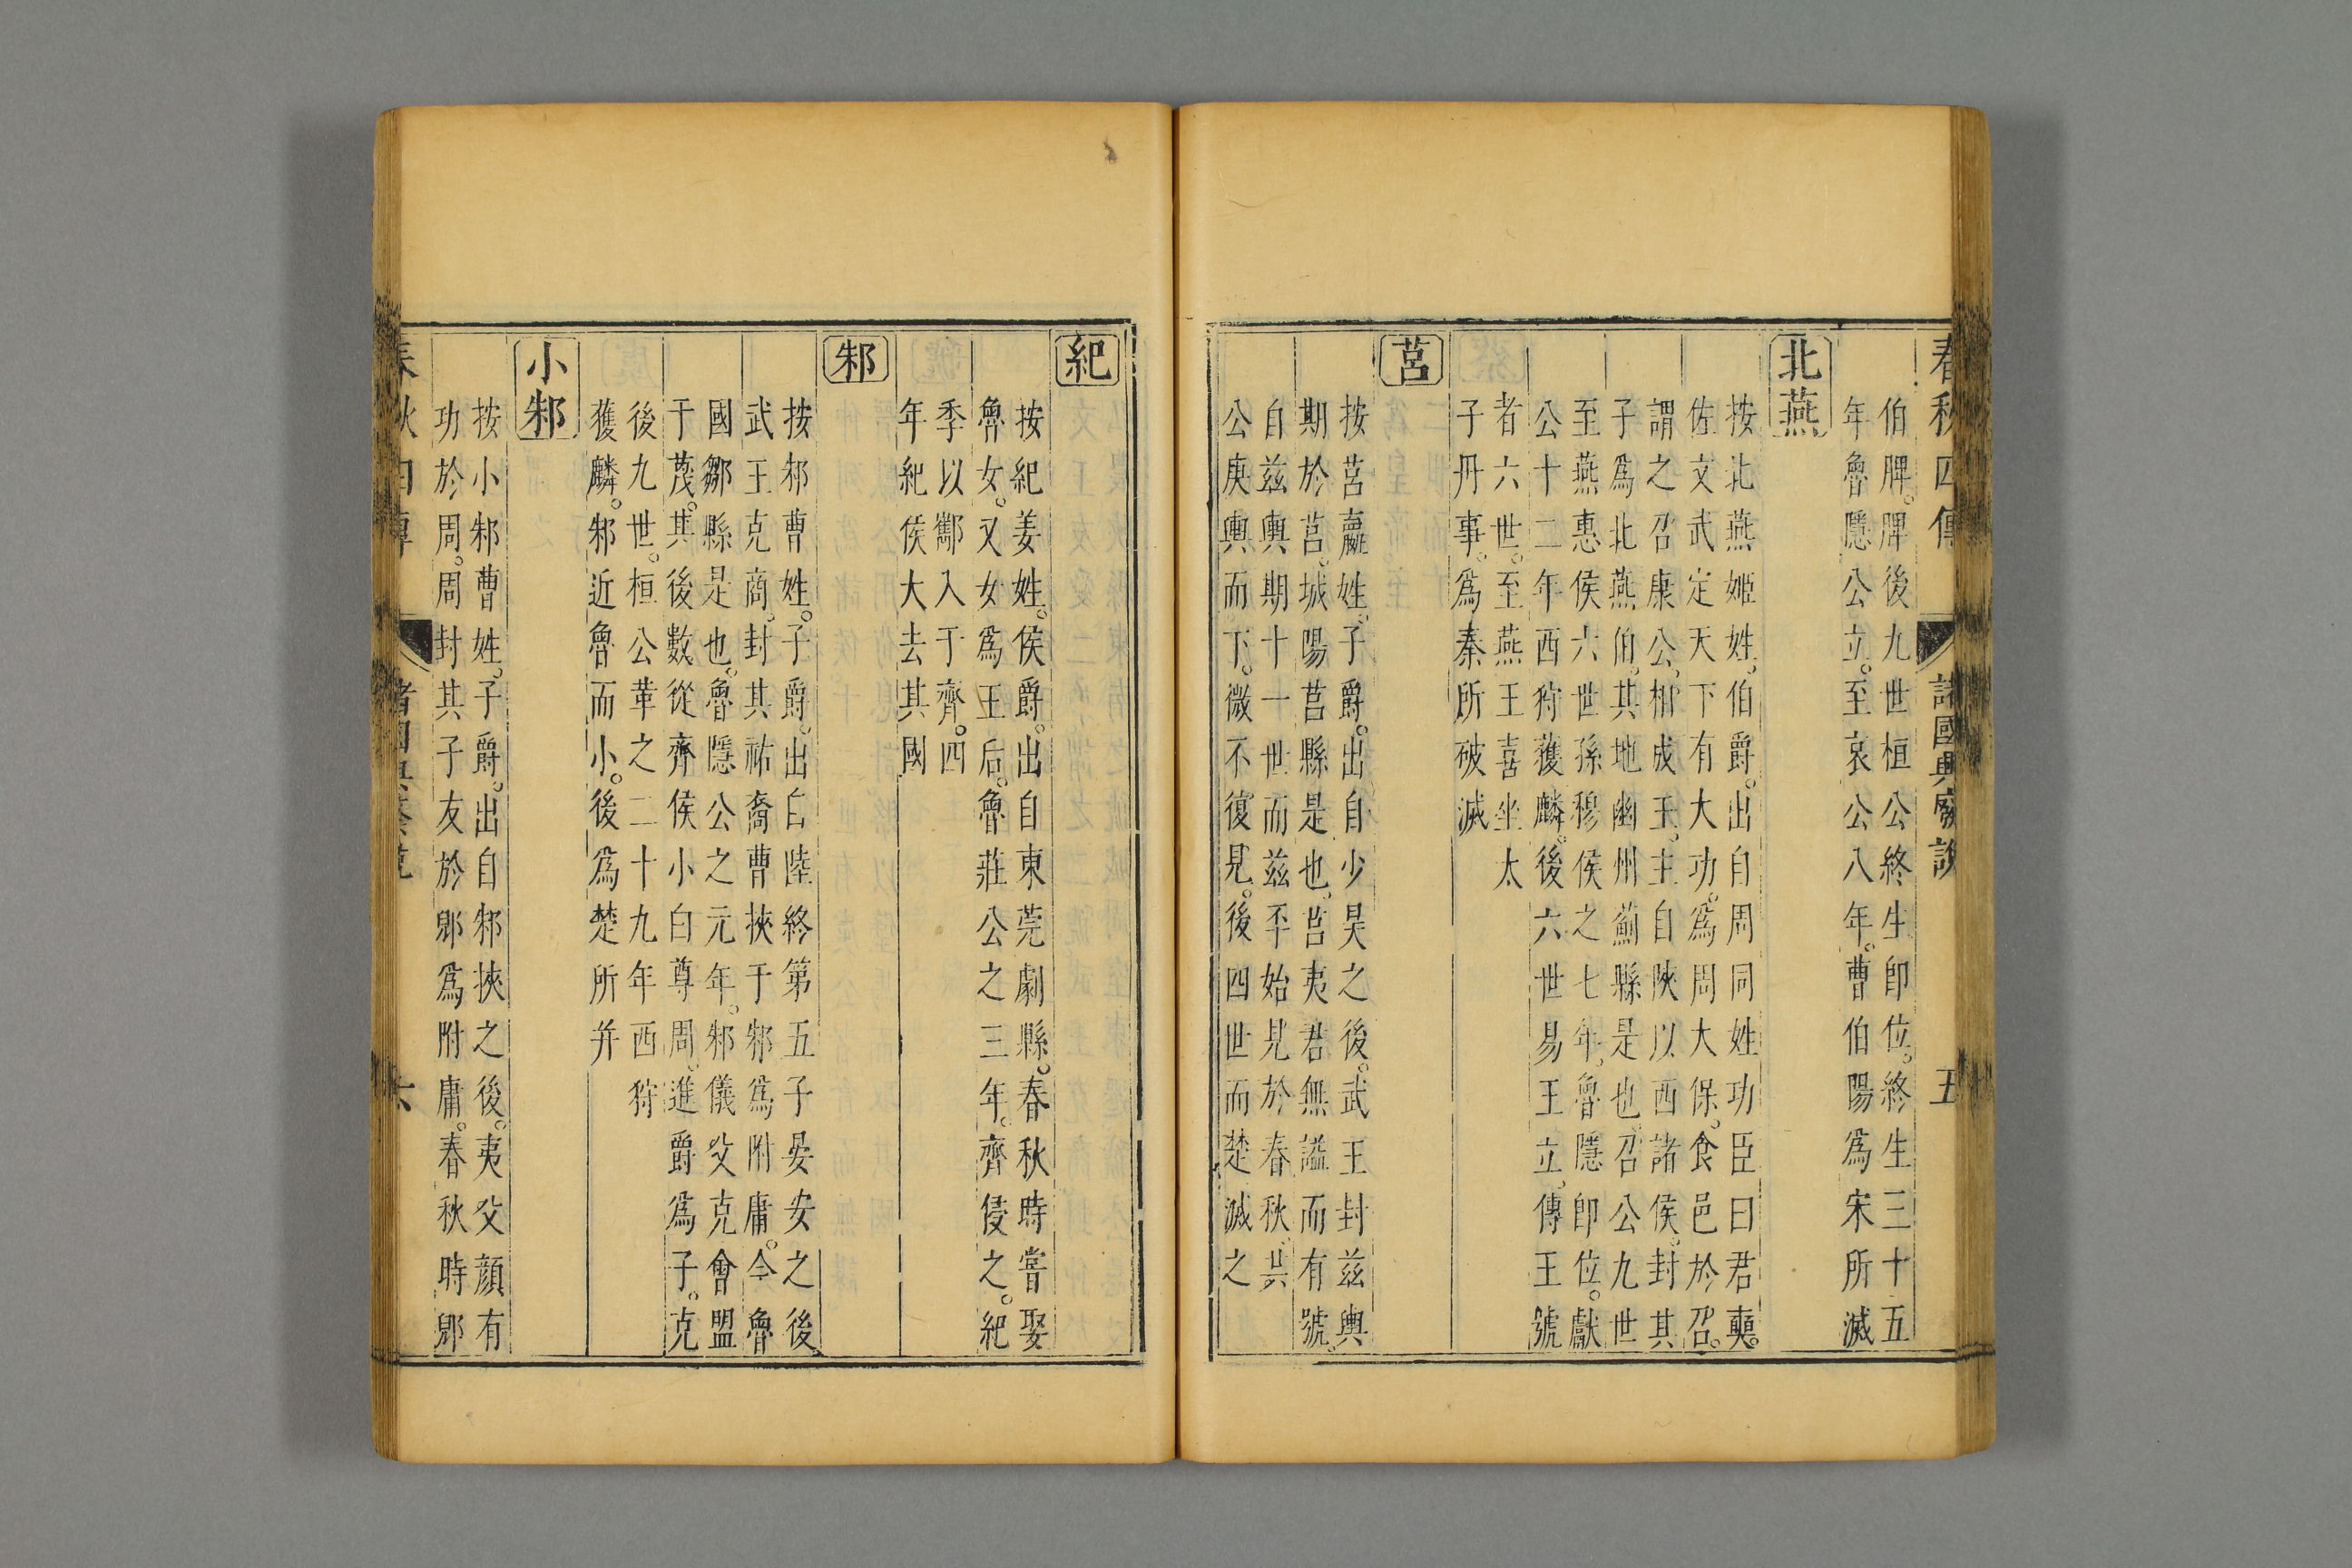 春秋四傳 諸國興廢說 五
伯脾。脾後九世桓公終生即位。終生三十五
年魯隱公立。至哀公八年。曹伯陽爲宋所滅
北燕
按北燕姬姓。伯爵。出自周同姓功臣曰君奭。
佐文武定天下有大功。爲周大保。食邑於召。
謂之召康公。相成王。主自陝以西諸侯。封其
子爲北燕伯。其地幽州薊縣是也。召公九世
至燕惠侯六世孫穆侯之七年。魯隱即位。獻
公十二年西狩獲麟。後六世易王立。傳王號
者六世。至燕王喜坐太
子丹事。爲秦所破滅
莒
按莒嬴姓。子爵。出自少昊之後。武王封兹輿
期於莒。城陽莒縣是也。莒夷君無謚而有號。
自兹輿期十一世而兹平始見於春秋。共
公庚輿而下。微不復見。後四世而楚滅之
紀
按紀姜姓。侯爵。出自東莞劇縣。春秋時嘗娶
魯女。又女爲王后。魯莊公之三年。齊侵之。紀
季以酅入于齊。四
年紀侯大去其國
邾
按邾曹姓。子爵。出自陸終第五子晏安之後
武王克商。封其祐裔曹挾于邾爲附庸。今魯
國鄒縣是也。魯隱公之元年。邾儀父克會盟
于茂。其後數從齊侯小白尊周。進爵爲子。克
後九世。桓公革之二十九年西狩
獲麟。邾近魯而小。後爲楚所并
小邾
按小邾曹姓。子爵。出自邾挾之後。夷父顏有
功於周。周封其子友於郳爲附庸。春秋時郳